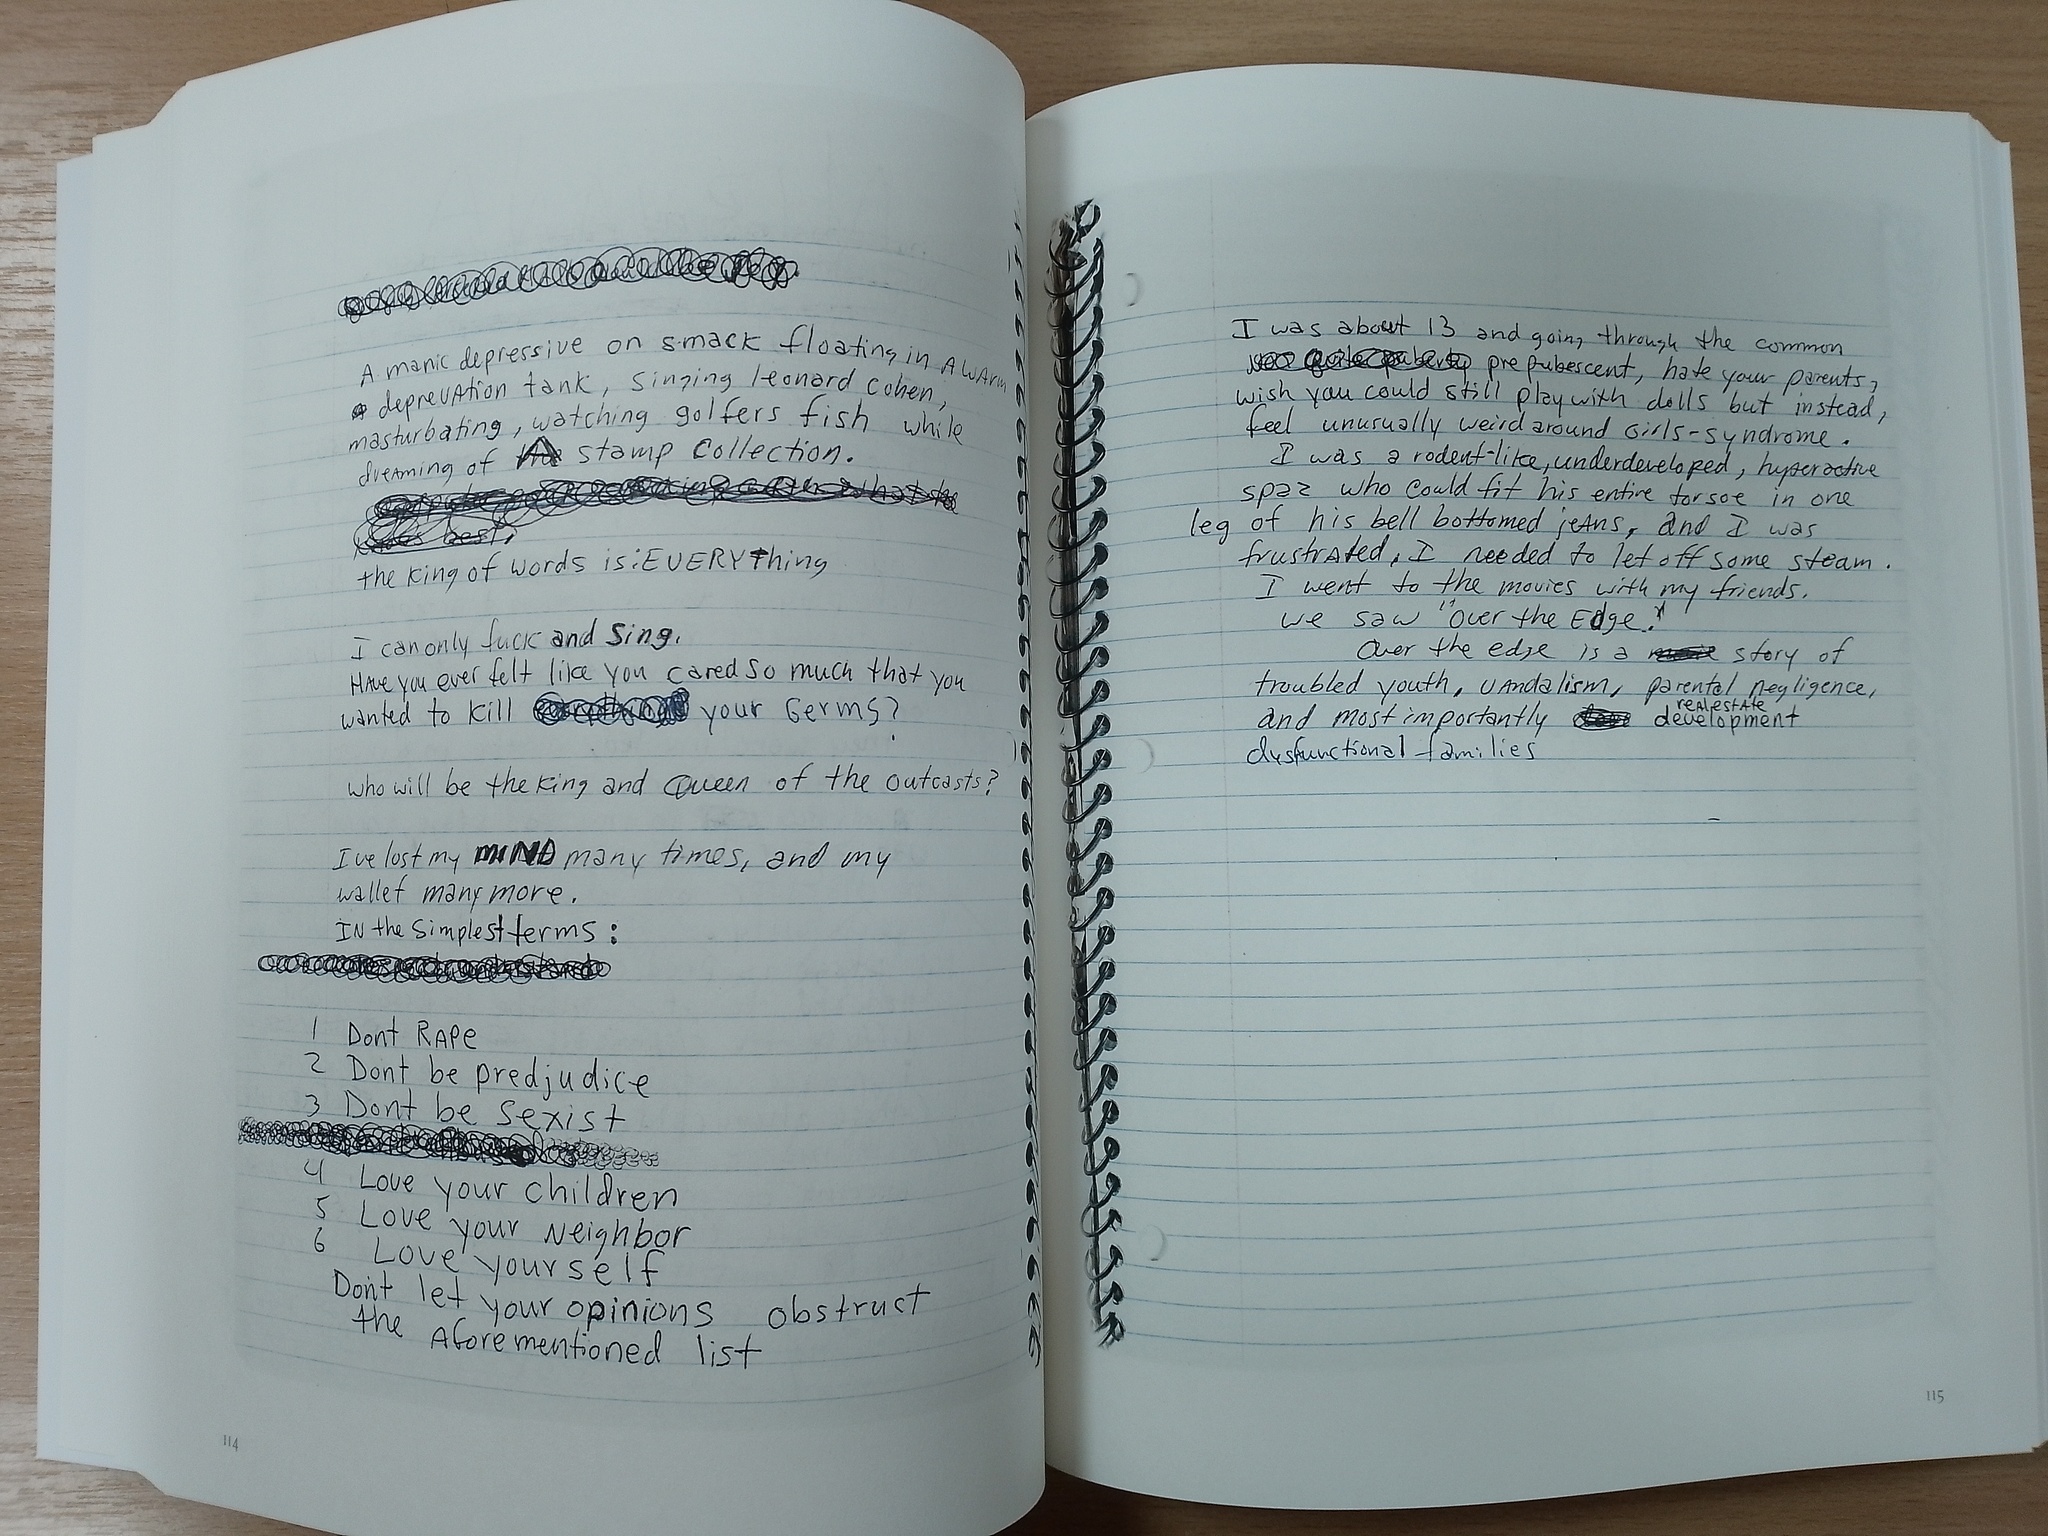 A manic depressive on smack floating in A WArm
deprevAtion tank, singing leonard cohen,
masturbating, watching golfers fish while
dreaming of stamp collection.
the King of words is: EVERYthing
I can only fuck and Sing.
HAve you ever felt like you cared so much that you
wanted to kill your Germs?
who will be the King and Queen of the outcasts?
Ive lost my MIND many times, and my
wallet many more.
IN the simplest terms:
1 Dont RAPe
2 Dont be predjudice
3 Dont be sexist
4 Love your children
5 Love your Neighbor
6 Love yourself
Dont let your opinions obstruct
the Aforementioned list
114
I was about 13 and going through the common
pre pubescent, hate your parents,
wish you could still play with dolls but instead,
feel unusually weird around Girls-syndrome.
I was a rodent-like, underdeveloped, hyperactive
spaz who could fit his entire torsoe in one
leg of his bell bottomed jeAns, and I was
frustrAted, I needed to let off some steam.
I went to the movies with my friends.
we saw "Over the Edge."
Over the edge is a story of
troubled youth, vAndalism, parental negligence,
and most importantly reAl estAte development
dysfunctional families
115